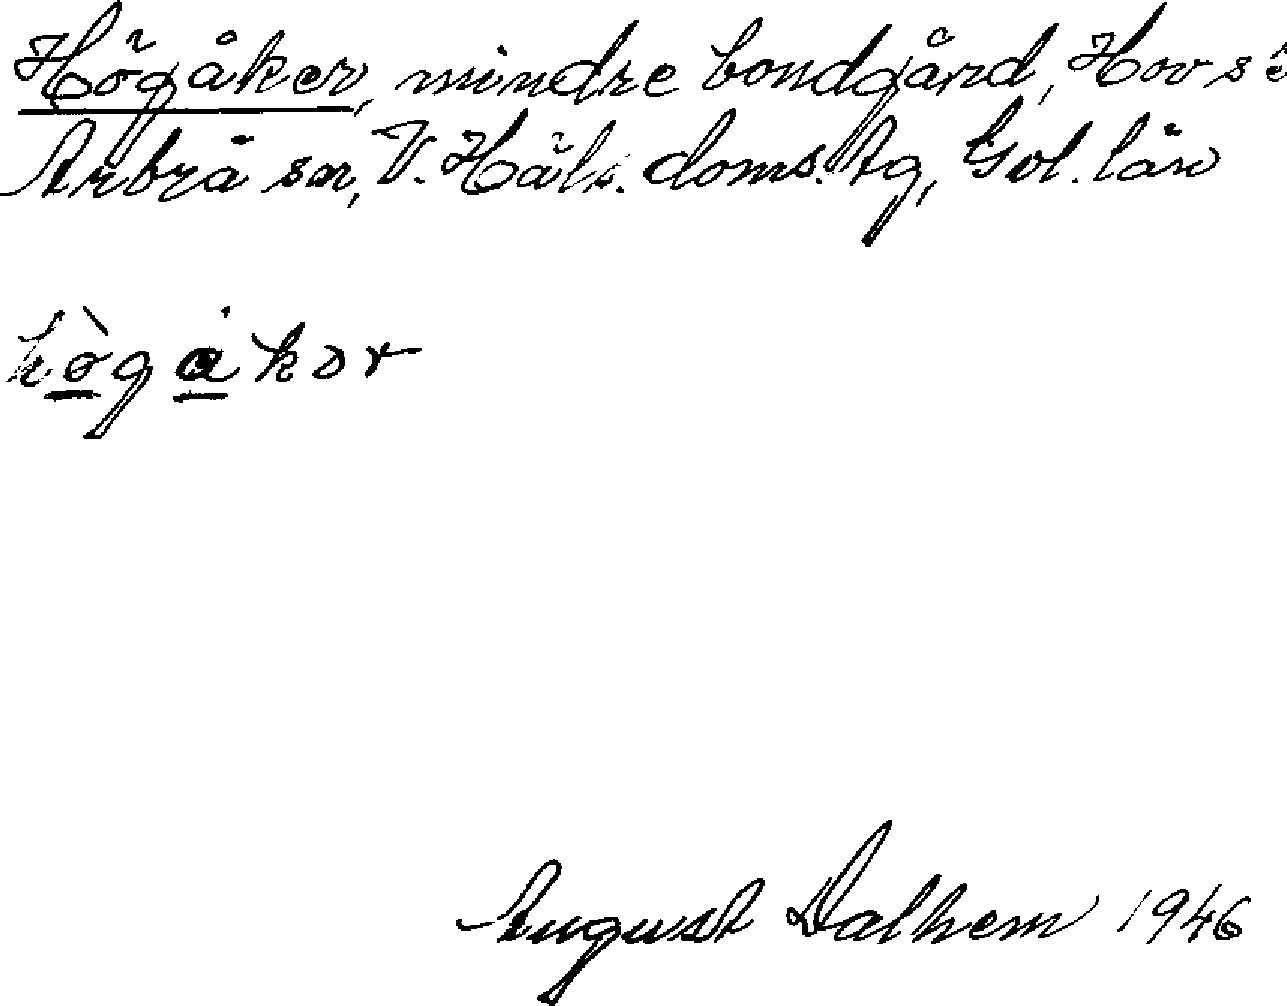 Högåker, mindre bondgård, Hov s
Arbrå sn, V. Häls. doms. tg, Gvl. län
hògåkər
August Dalhem 1946